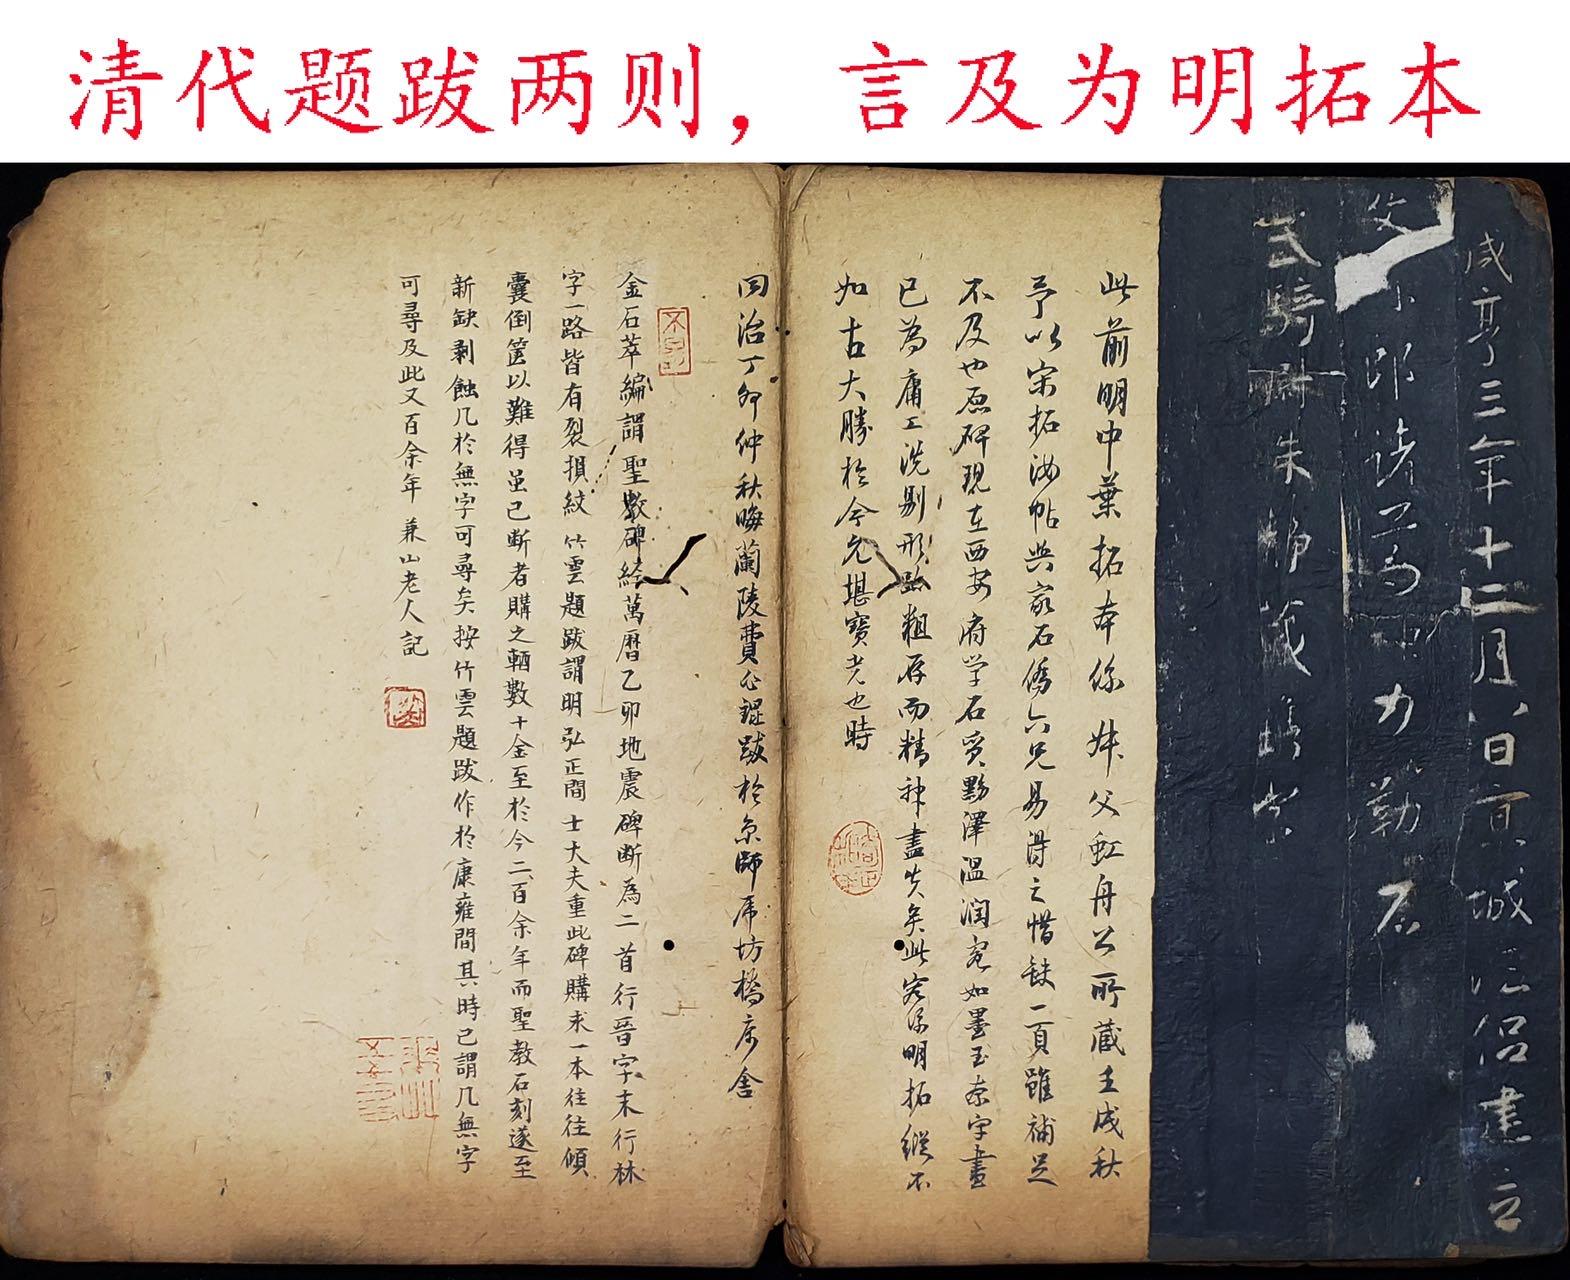 清代题跋两则，言及为明拓本
咸亨三年十二月八日京城法侣建立
文林郎诸葛神力勒石
武骑尉朱静藏镌字
此前明中葉拓本係妹父虹舟公所藏壬戌秋
予以宋拓汝帖与家石僑六兄易得之惜缺一頁雖補足
不及也原碑現在西安府学石質黝澤温潤宛如墨玉奈字畫
已為庸工洗剔形路粗存而精神盡失矣此寔係明拓縱不
如古大勝於今允堪寶也時
同治丁卯仲秋晦蘭陵費公錕跋於京師虎坊橋客舍
金石萃編謂聖教碑経萬曆乙卯地震碑断為二首行晉字末行林
字一路皆有裂損紋竹雲題跋謂明弘正間士大夫重此碑購求一本往往傾
囊倒篋以難得虽已断者購之輒數十金至於今二百余年而聖教石刻遂至
新缺剥蝕几於無字可尋矣按竹雲題跋作於康雍間其時已謂几無字
可尋及此又百余年 兼山老人記